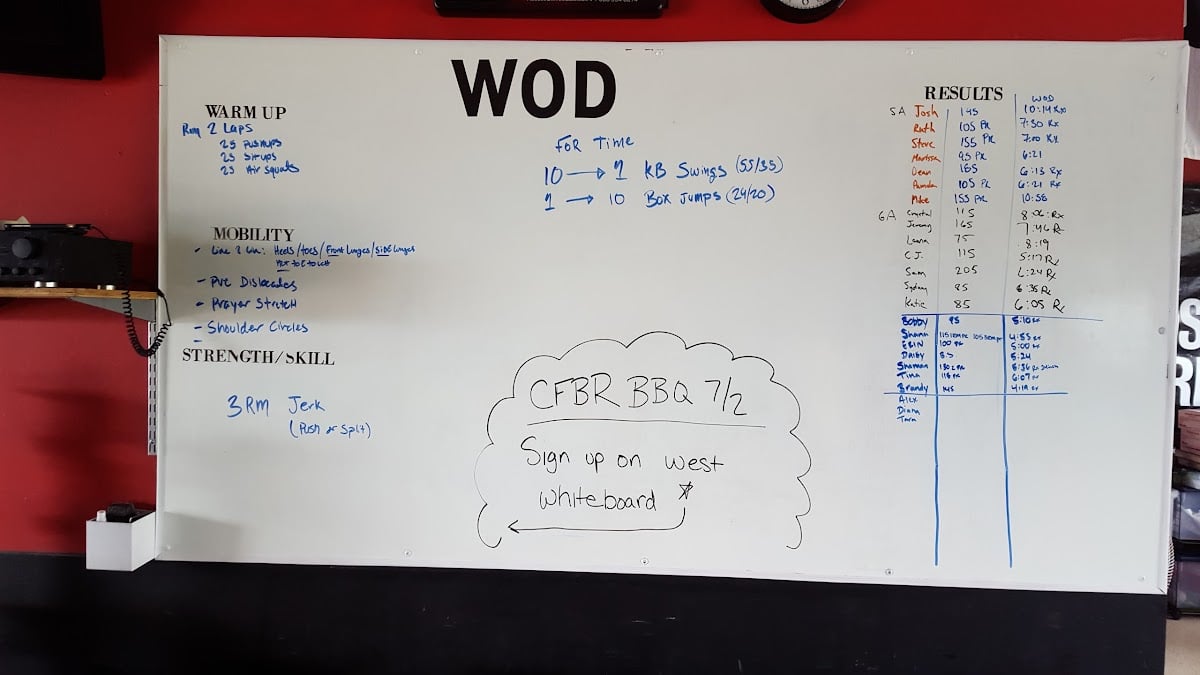 WOD
WARM UP
Run 2 Laps
25 Pushups
25 Situps
25 Air Squats
MOBILITY
- Line 2 Line: Heels/toes/Front Lunges/Side Lunges
- PVC Dislocates
- Prayer Stretch
- Shoulder Circles
STRENGTH/SKILL
3RM Jerk
(Push or Split)
FOR TIME
10 → 1 KB Swings (55/35)
1 → 10 Box Jumps (24/20)
CFBR BBQ 7/2
Sign up on west
whiteboard
RESULTS
WOD
5A Josh 145 10:14 Rx
Ruth 105 PR 7:50 Rx
Steve 155 PR 7:00 Rx
Marissa 95 PR 6:21
Dean 165 6:13 Rx
105 PR 6:21 Rx
Mike 155 PR 10:58
6A Crystal 115 8:06 Rx
Jeremy 165 7:46 Rx
Laura 75 8:19
C.J. 115 5:17 Rx
Sam 205 6:24 Rx
Sydney 85 6:35 Rx
Katie 85 6:05 Rx
Bobby 95 5:10 Rx
Shawn 4:55 Rx
ERIN 100 PR 5:00 Rx
DAISY 85 5:24
Shannan 5:36 Rx
Tina 115 PR 6:07 Rx
Brandy 145 4:19 Rx
Alex
Diana
Tara